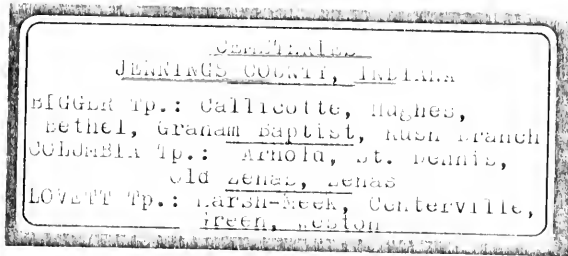 CEMETERIES
JENNINGS COUNTY, INDIANA
BIGGER Tp.: Callicotte, Hughes,
Bethel, Graham Baptist, Rush Branch
COLUMBIA Tp.: Arnold, St. Dennis,
Old Zenas, Zenas
LOVETT Tp.: Marsh-Meek, Centerville,
Green, Weston